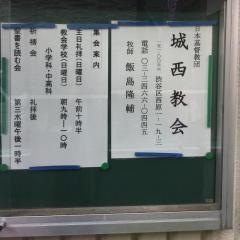 日本基督教団
城西教会
渋谷区西原一-一九-三
電話 〇三-三四六六-〇四四五
牧師 飯島隆輔
集会案内
主日礼拝(日曜日) 午前十時半
教会学校(日曜日) 朝九時-一〇時
小学科・中高科
祈祷会 礼拝後
聖書を読む会 第三水曜午後一時半